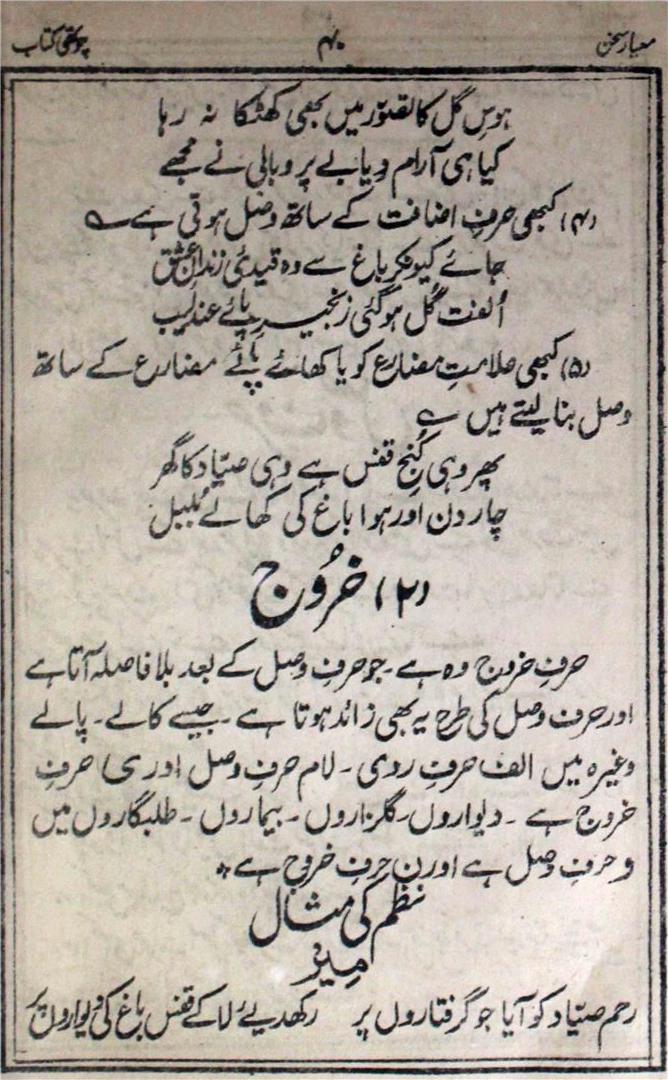 معیار سخن ۴۰ چوتھی کتاب
ہوسِ گل کا تصوّر میں بھی کھٹکا نہ رہا
کیا ہی آرام دیا بے پر و بالی نے مجھے
(۴) کبھی حرفِ اضافت کے ساتھ وصل ہوتی ہے ؎
جائے کیونکر باغ سے وہ قیدیٔ زندانِ عشق
اُلفت گل ہوگئی زنجیرِ پائے عندلیب
(۵) کبھی علامتِ مضارع کو یا کھائے پائے مضارع کے ساتھ
وصل بنا لیتے ہیں ؎
پھر وہی کُنج قفس ہے وہی صیّاد کا گھر
چار دن اور ہوا باغ کی کھالے بُلبل
(۲) خرُوج
حرفِ خروج وہ ہے۔ جو حرفِ وصل کے بعد بلا فاصلہ آتا ہے
اور حرف وصل کی طرح یہ بھی زائد ہوتا ہے۔ جیسے کالے۔ پالے
وغیرہ میں الف حرفِ روی۔ لام حرفِ وصل اور ی حرفِ
خروج ہے۔ دیواروں۔ گلزاروں۔ بیماروں۔ طلبگاروں میں
و حرفِ وصل ہے اور ن حرفِ خروج ہے*
نظم کی مثال
میرؔ
رحم صیّاد کو آیا جو گرفتاروں پر رکھدیئے لا کے قفس باغ کی دیواروں پر